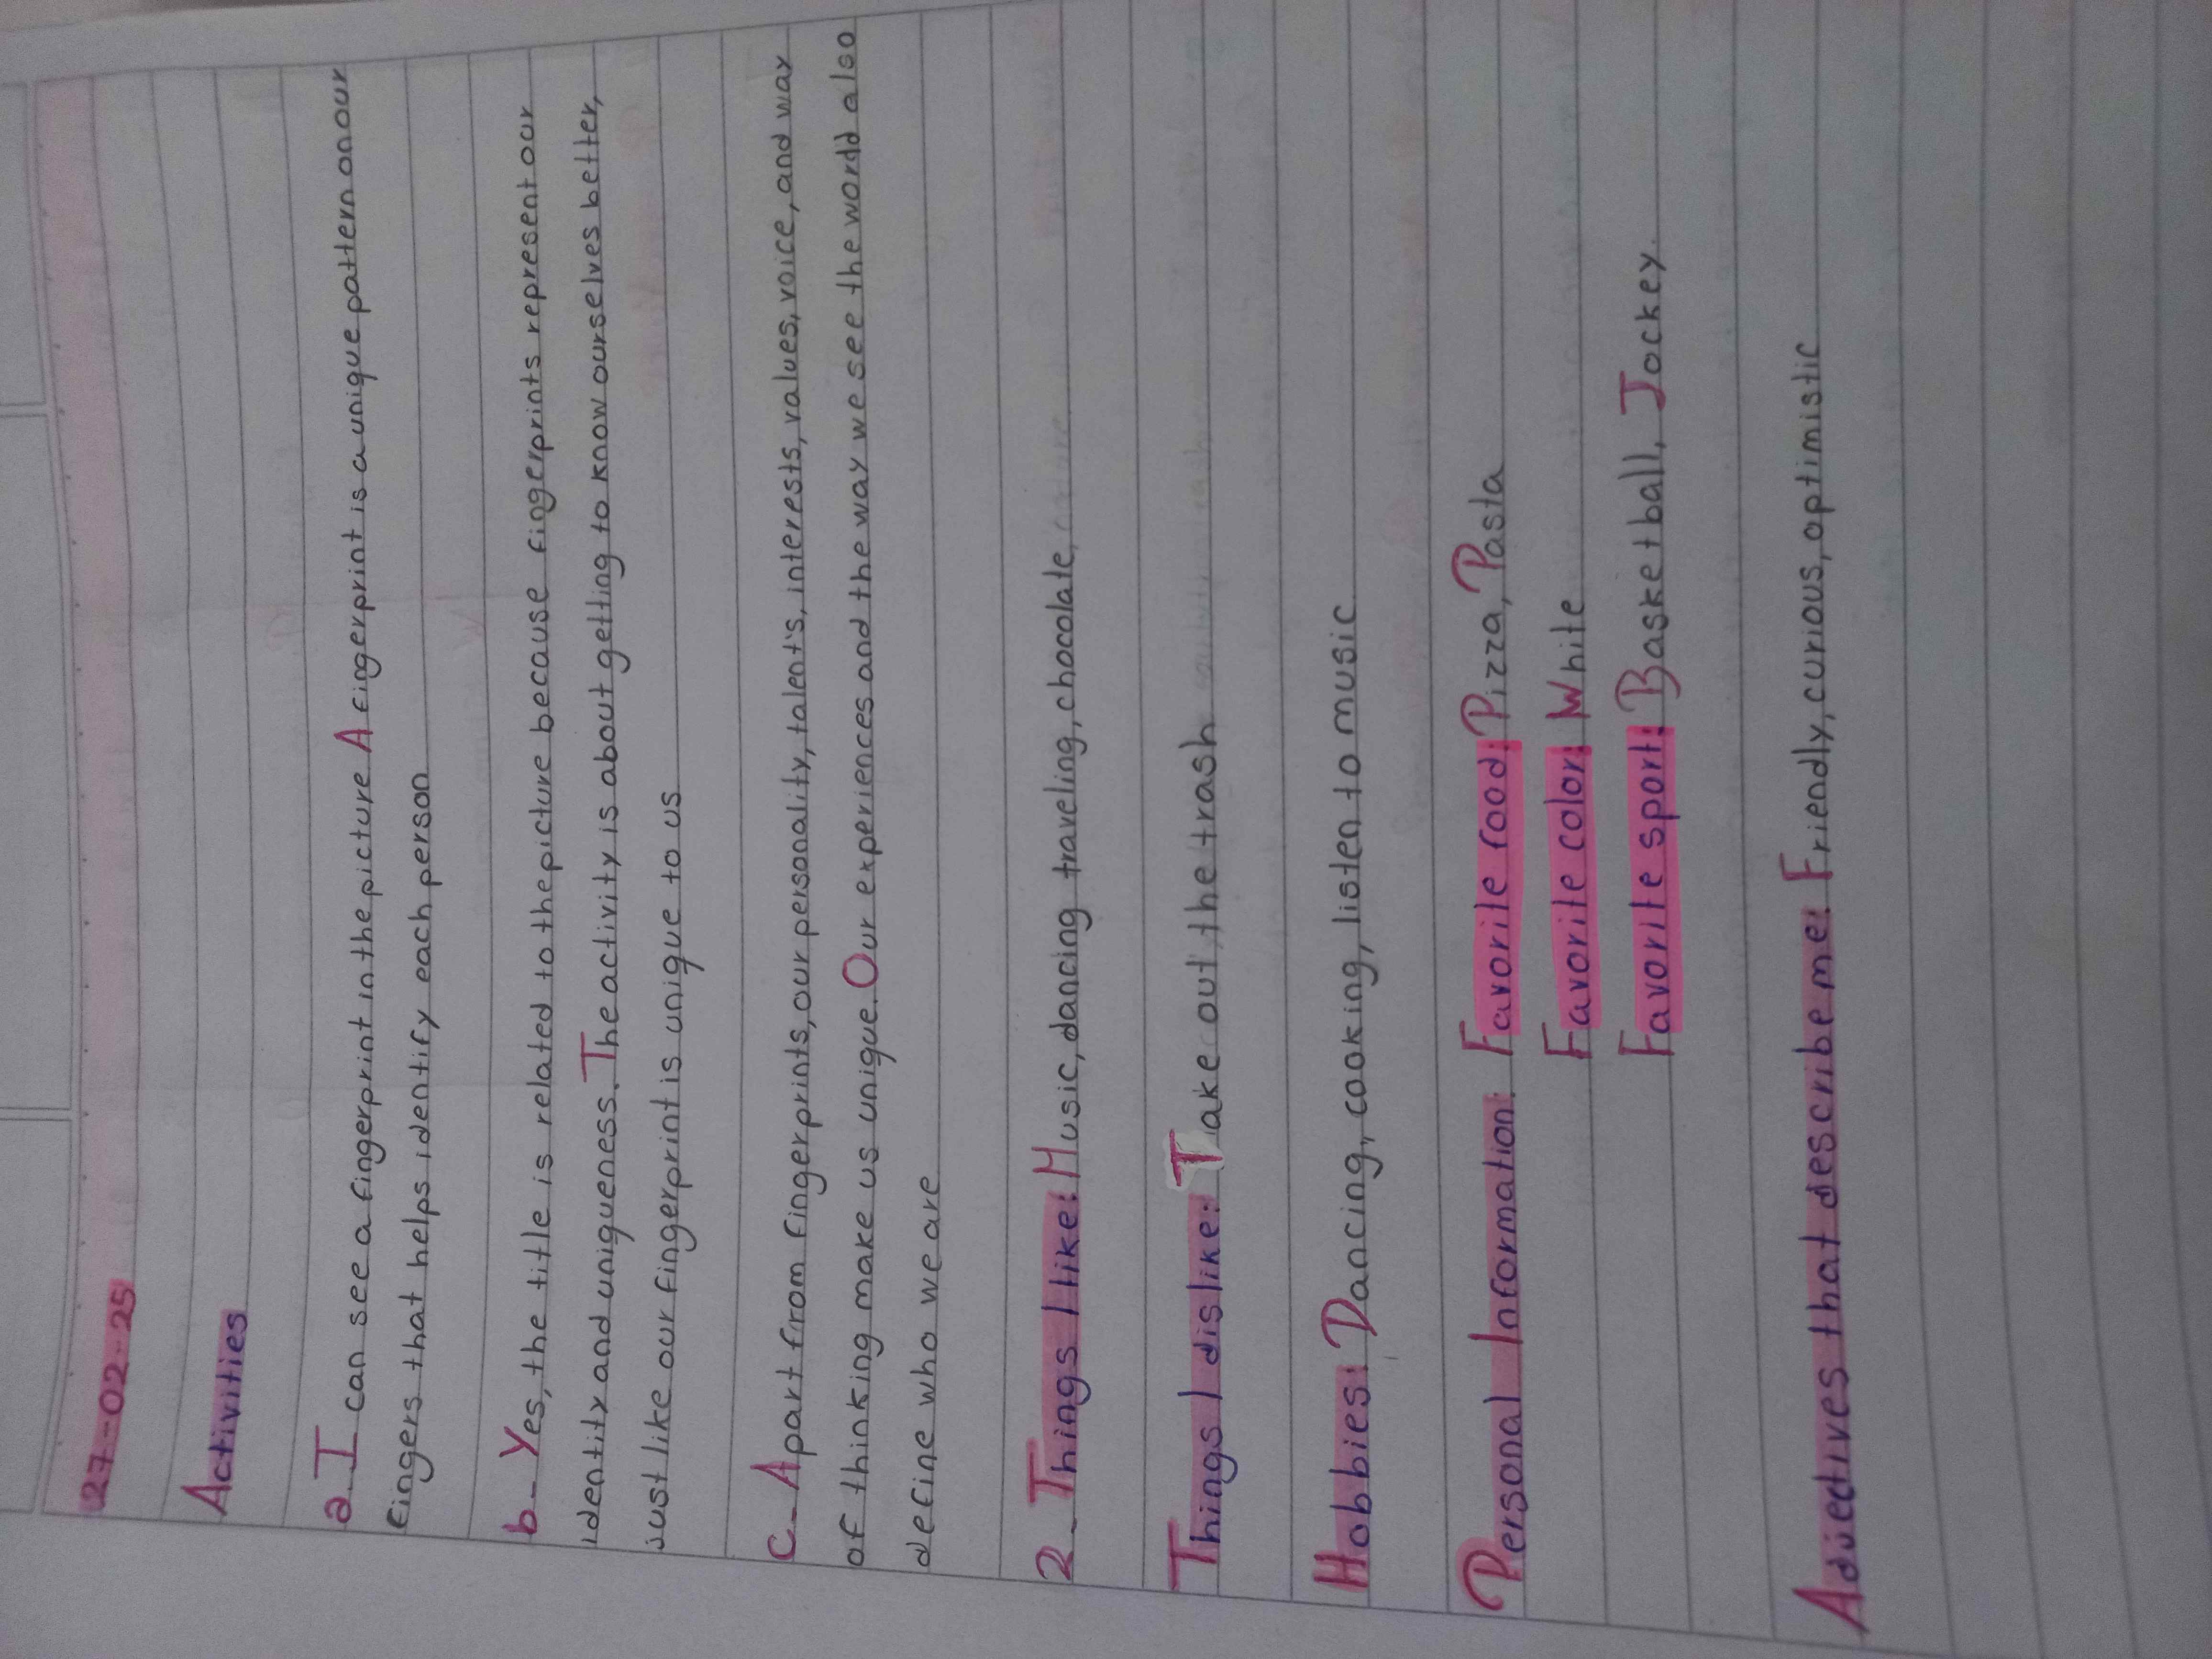 27-02-25
Activities
a_ I can see a fingerprint in the picture A fingerprint is a unique pattern on our
fingers that helps identify each person
b_ Yes, the title is related to the picture because fingerprints represent our
identity and uniqueness. The activity is about getting to know ourselves better,
just like our fingerprint is unique to us
c_ Apart from fingerprints, our personality, talents, interests, values, voice, and way
of thinking make us unique. Our experiences and the way we see the world also
define who we are
2_ Things I like: Music, dancing traveling, chocolate,
Things I dislike: Take out the trash
Hobbies: Dancing, cooking, listen to music
Personal Information: Favorite food: Pizza, Pasta
Favorite color: White
Favorite sport: Basketball, Jockey.
Adjectives that describe me: Friendly, curious, optimistic